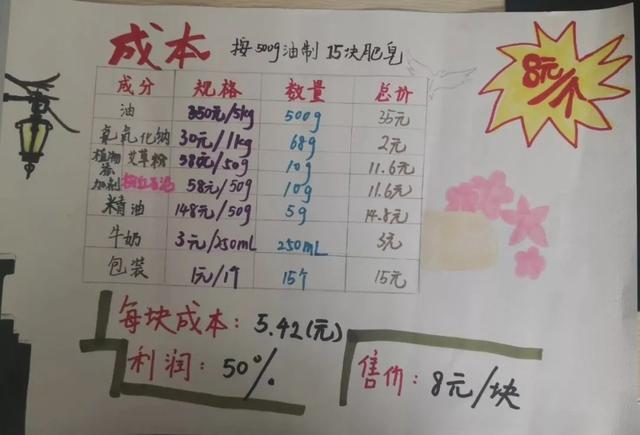 成本 按500g油制15块肥皂
8元/个
成分 规格 数量 总价
油 350元/5kg 500g 35元
氢氧化钠 30元/1kg 68g 2元
植物添加剂 艾草粉 58元/50g 10g 11.6元
粉红石泥 58元/50g 10g 11.6元
精油 148元/50g 5g 14.8元
牛奶 3元/250mL 250mL 3元
包装 1元/1个 15个 15元
每块成本：5.42(元)
利润：50%
售价：8元/块